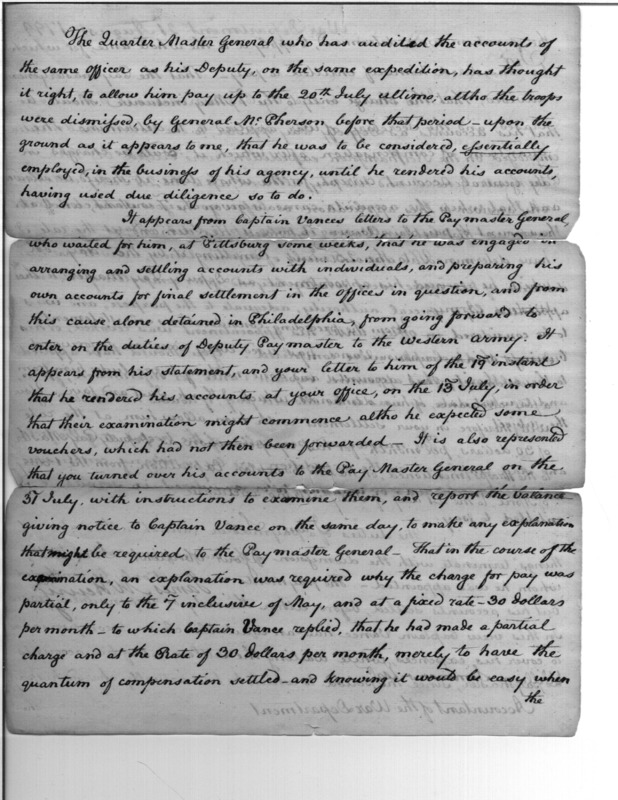 The Quarter Master General who has audited the accounts of
the same officer as his Deputy, on the same expedition, has thought
it right, to allow him pay up to the 20th July ultimo, altho the troops
were dismissed, by General McPherson before that period - upon the
ground as it appears to me, that he was to be considered, essentially
employed, in the business of his agency, until he rendered his accounts,
having used due diligence so to do.
It appears from Captain Vances letters to the Paymaster General,
who waited for him, at Pittsburg some weeks, that he was engaged in
arranging and settling accounts with individuals, and preparing his
own accounts for final settlement in the offices in question, and from
this cause alone detained in Philadelphia, from going forward to
enter on the duties of Deputy Paymaster to the Western army. It
appears from his statement, and your letter to him of the 19 instant
that he rendered his accounts at your office, on the 13 July, in order
that their examination might commence altho he expected some
vouchers, which had not then been forwarded - It is also represented
that you turned over his accounts to the Pay Master General on the
31 July, with instructions to examine them, and report the balance
giving notice to Captain Vance on the same day, to make any explanation
that might be required to the Paymaster General - That in the course of the
examination, an explanation was required why the charge for pay was
partial, only to the 7 inclusive of May, and at a fixed rate - 30 dollars
per month - to which Captain Vance replied, that he had made a partial
charge and at the Rate of 30 dollars per month, merely to have the
quantum of compensation settled - and knowing it would be easy when
the
Accountant of the War Department